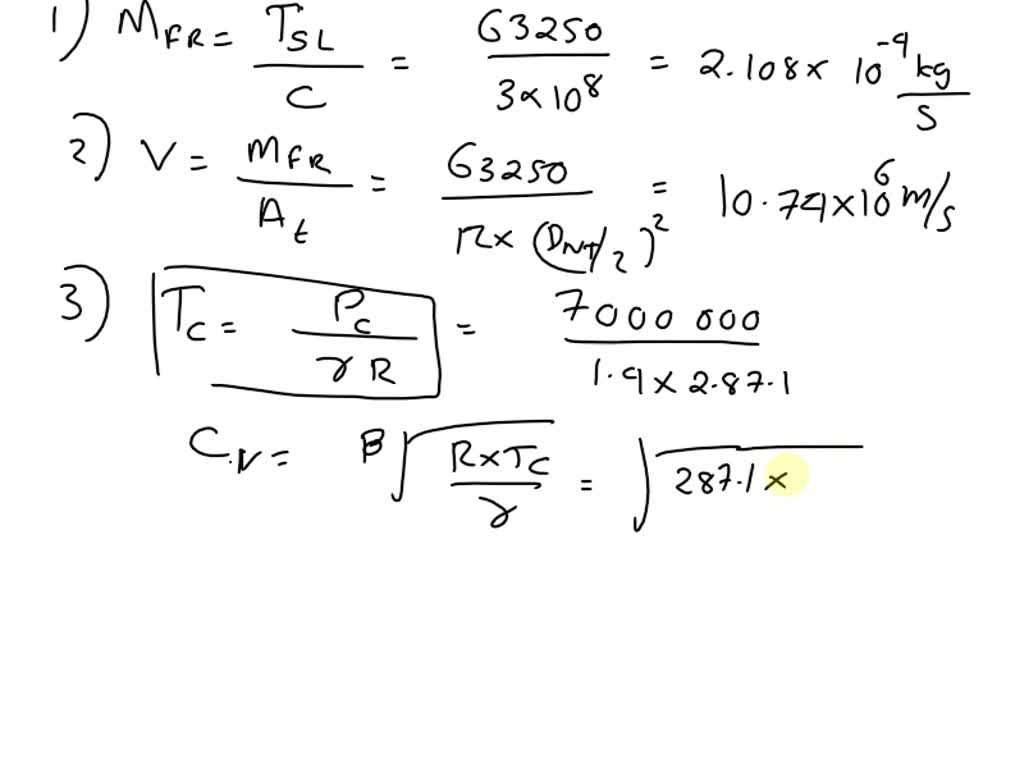 1) M_FR = T_SL / C = 63250 / 3×10^8 = 2.108 × 10^-4 kg/s
2) V = M_FR / A_t = 63250 / π × (D_NT/2)^2 = 10.74×10^6 m/s
3) T_C = P_C / γ R = 7000 000 / 1.4 × 2.87.1
C.V = B √(R×T_C / γ) = √(287.1 ×